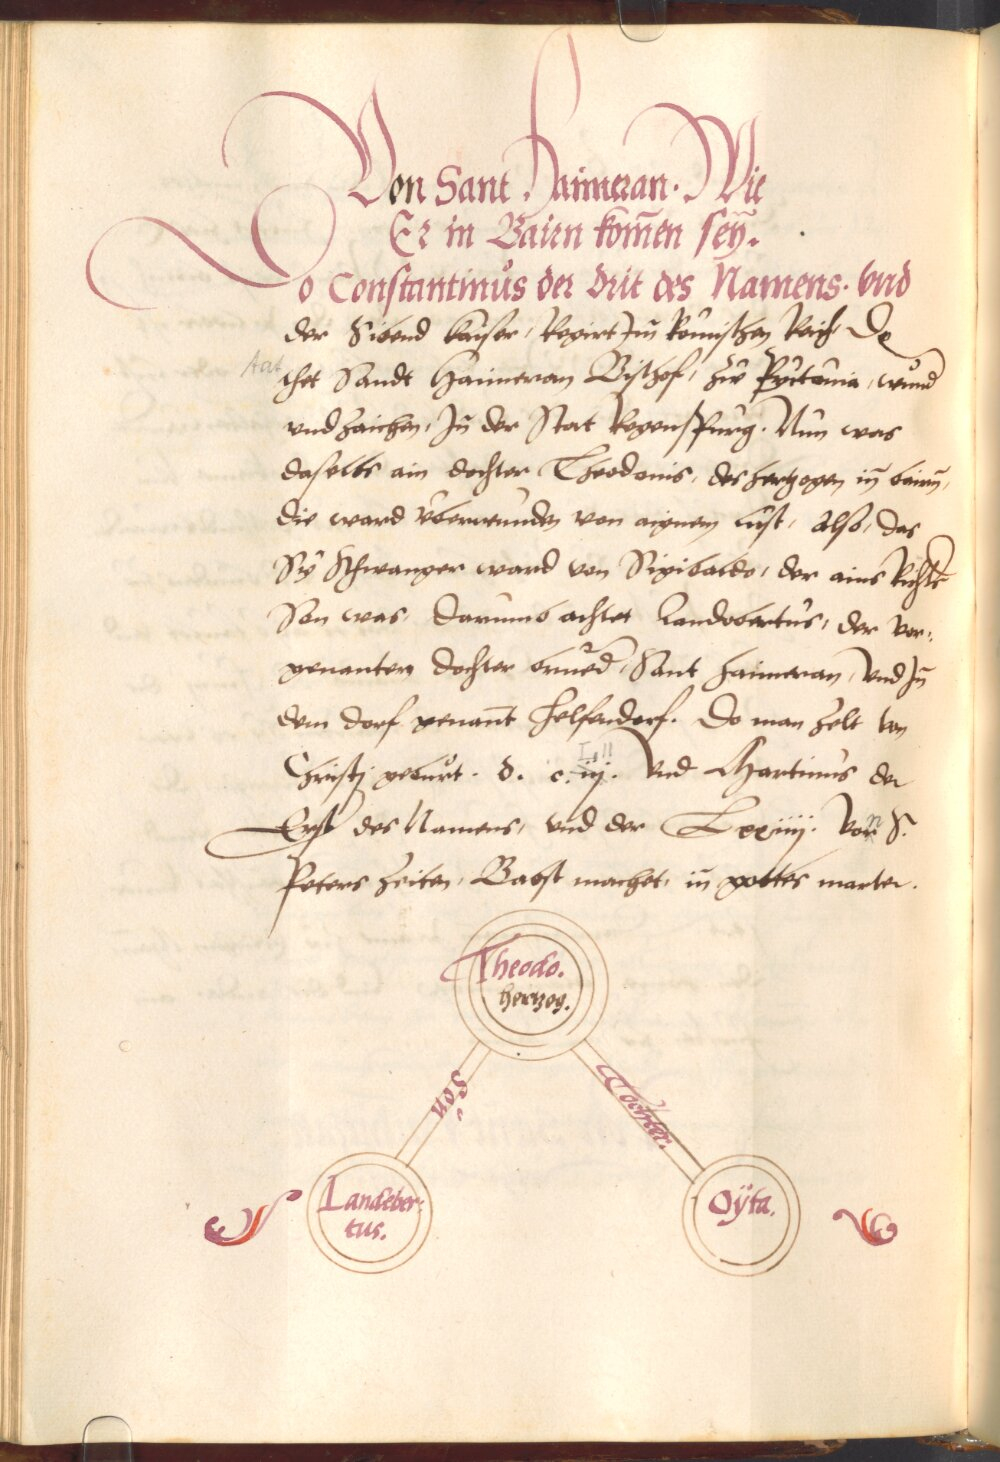 Von Sant Haimeran. Wie
Er in Baiern kom̄en seӱ.
Do Constantinůs der drit des Namens. vnd
der Sibend kaiser, Regirt Jn̄ Römischen Reich, De
chet Sandt Haimeran Bischof, zů Pyctavia, wund
vnd zaichen, Jn̄ der Stat Regenspurg. Nun was
daselbs ain dochter Theodonis, des hertzogen in̄ bairn̄,
die ward vberwunden von aignem lust, Also, das
Sӱ Schwanger ward von Sigibaldo, der ains Richters
Son was, darumb achtet Landobertus, der vor-
genanten dochter brueder, Sant haimeran, vnd Jn̄
dem dorf genant helfendorf. Do man zelt von
Christj geburt. d. c. iij. vnd Martinus der
Erst des Namens, vnd der Lxxiiij. Von S.
Peters zeiten, Babst machet, in̄ gottes marter.
Theodo.
hertzog.
Son
Tochter.
Landeber-
tus.
Oӱta.